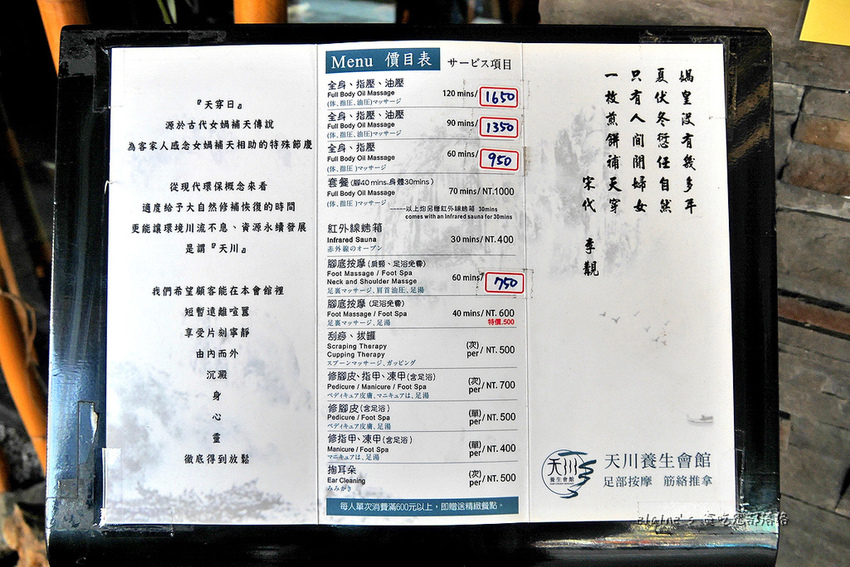 『天穿日』
源於古代女媧補天傳說
為客家人感念女媧補天相助的特殊節慶
從現代環保概念來看
適度給予大自然修補恢復的時間
更能讓環境川流不息、資源永續發展
是謂『天川』
我們希望顧客能在本會館裡
短暫遠離喧囂
享受片刻寧靜
由內而外
沉澱
身
心
靈
徹底得到放鬆
Menu 價目表 サービス項目
全身、指壓、油壓
Full Body Oil Massage
(体、指圧、油圧)マッサージ
120 mins/ 1650
全身、指壓、油壓
Full Body Oil Massage
(体、指圧、油圧)マッサージ
90 mins/ 1350
全身、指壓
Full Body Oil Massage
(体、指圧)マッサージ
60 mins/ 950
套餐(腳40mins.身體30mins)
Full Body Oil Massage
(体、指圧)マッサージ
70 mins/ NT.1000
以上均另贈紅外線烤箱 30mins
comes with an Infrared sauna for 30mins
紅外線烤箱
Infrared Sauna
赤外線のオーブン
30 mins/ NT. 400
腳底按摩(肩頸、足浴免費)
Foot Massage / Foot Spa
Neck and Shoulder Massge
足裏マッサージ、肩首油圧、足湯
60 mins/ 750
腳底按摩(足浴免費)
Foot Massage / Foot Spa
足裏マッサージ、足湯
40 mins/ NT. 600
特價.500
刮痧、拔罐
Scraping Therapy
Cupping Therapy
スプーンマッサージ、ガッピング
(次) per/ NT. 500
修腳皮、指甲、凍甲(含足浴)
Pedicure / Manicure / Foot Spa
ペディキュア皮膚、マニキュアは、足湯
(次) per/ NT. 700
修腳皮(含足浴)
Pedicure / Foot Spa
ペディキュア皮膚、足湯
(單) per/ NT. 500
修指甲、凍甲(含足浴)
Manicure / Foot Spa
マニキュアは、足湯
(單) per/ NT. 400
掏耳朵
Ear Cleaning
みみかき
(次) per/ NT. 500
每人單次消費滿600元以上，即贈送精緻餐點。
媧皇沒有幾多年
夏伏冬愆任自然
只有人間閒婦女
一枚煎餅補天穿
宋代 李覯
天川
養生會館
天川養生會館
足部按摩 筋絡推拿